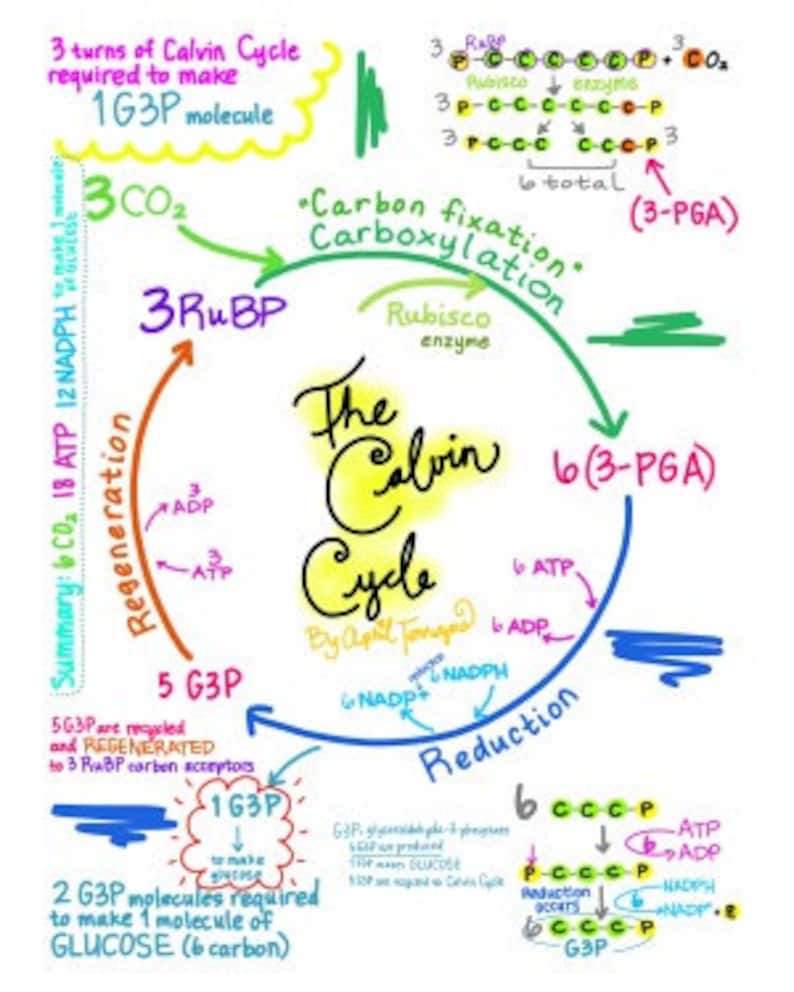 3 turns of Calvin Cycle
required to make
1 G3P molecule
3 P-C-C-C-C-C-P + 3 CO₂
RuBP
Rubisco enzyme
3 P-C-C-C-C-C-C-P
3 P-C-C-C C-C-C-P 3
6 total
(3-PGA)
Summary: 6 CO₂ 18 ATP 12 NADPH to make 1 molecule
of GLUCOSE
3CO₂
"Carbon fixation"
Carboxylation
3RuBP
Rubisco
enzyme
The
Calvin
Cycle
By April
6(3-PGA)
Regeneration
3
ADP
3
ATP
6 ATP
6 ADP
6 NADPH
6 NADP+
Reduction
5 G3P
5 G3P are recycled
and REGENERATED
to 3 RuBP carbon acceptors
1 G3P
to make
glucose
2 G3P molecules required
to make 1 molecule of
GLUCOSE (6 carbon)
G3P: glyceraldehyde-3-phosphate
6 G3P are produced
1 G3P makes GLUCOSE
5 G3P are recycled to Calvin Cycle
6 C-C-C-P
6
ATP
ADP
P-C-C-C-P
Reduction
occurs
6
NADPH
NADP+ + P
6 C-C-C-P
G3P